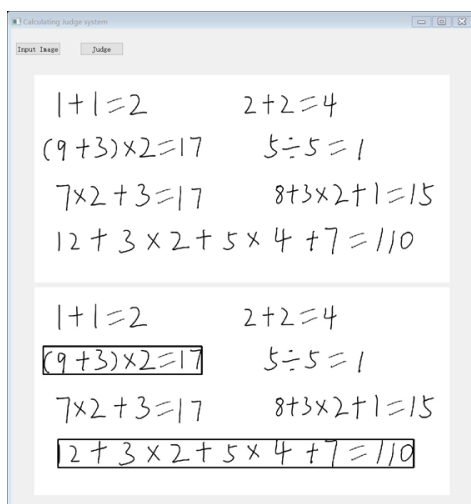 Calculating Judge system
Input Image Judge
1+1=2 2+2=4
(9+3)×2=17 5÷5=1
7×2+3=17 8+3×2+1=15
12+3×2+5×4+7=110
1+1=2 2+2=4
(9+3)×2=17 5÷5=1
7×2+3=17 8+3×2+1=15
12+3×2+5×4+7=110